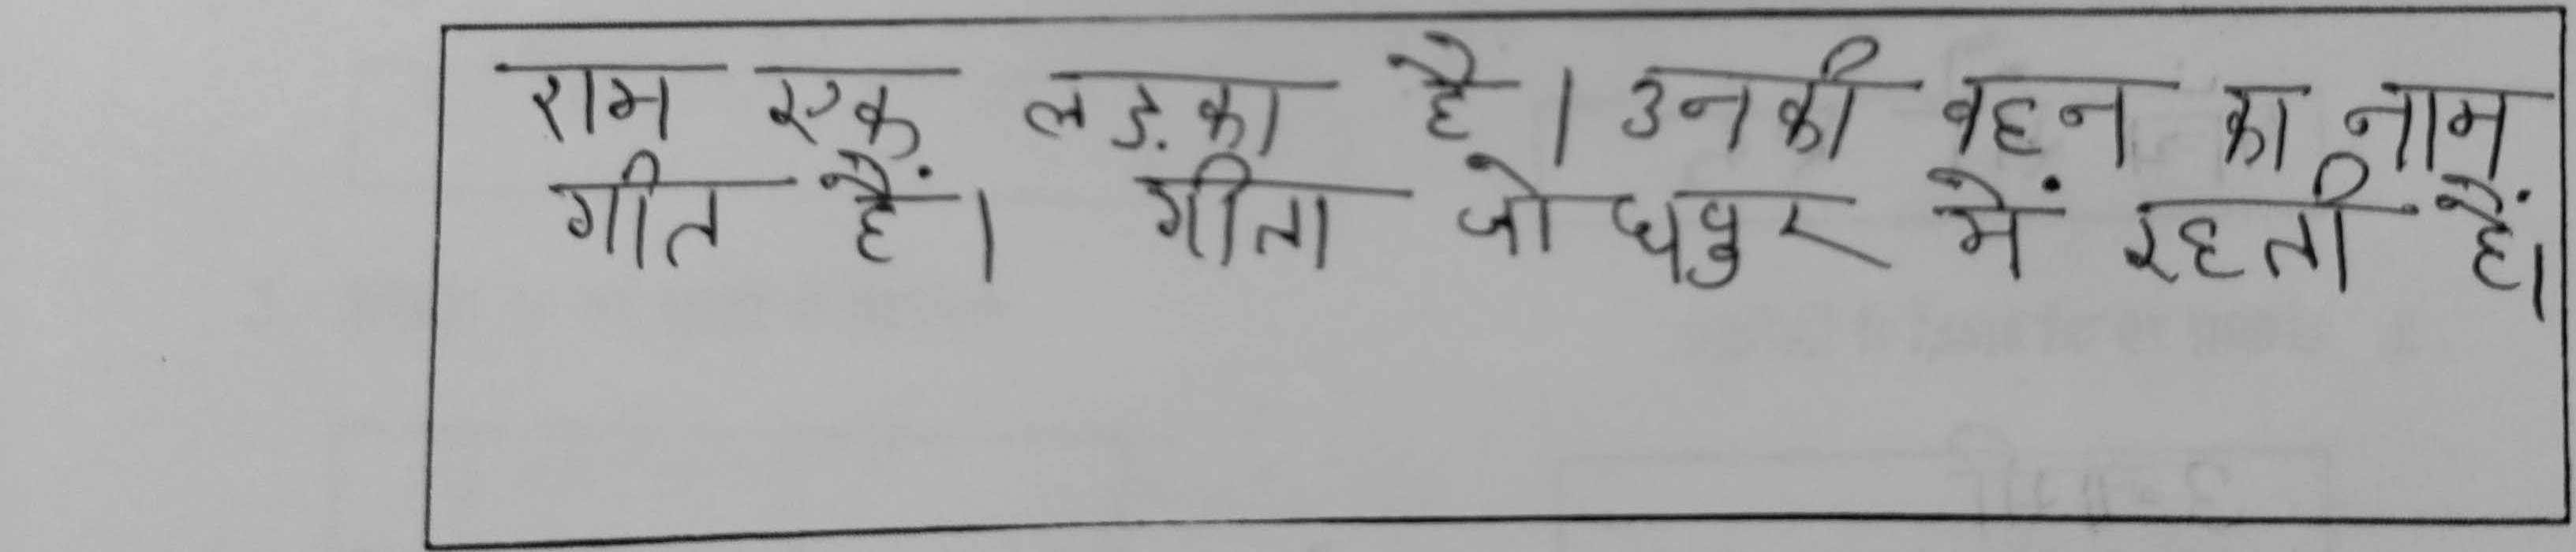 राम एक लड़का है। उनकी वहन का नाम
गीत हैं। गीता जोधपुर में रहती हैं।